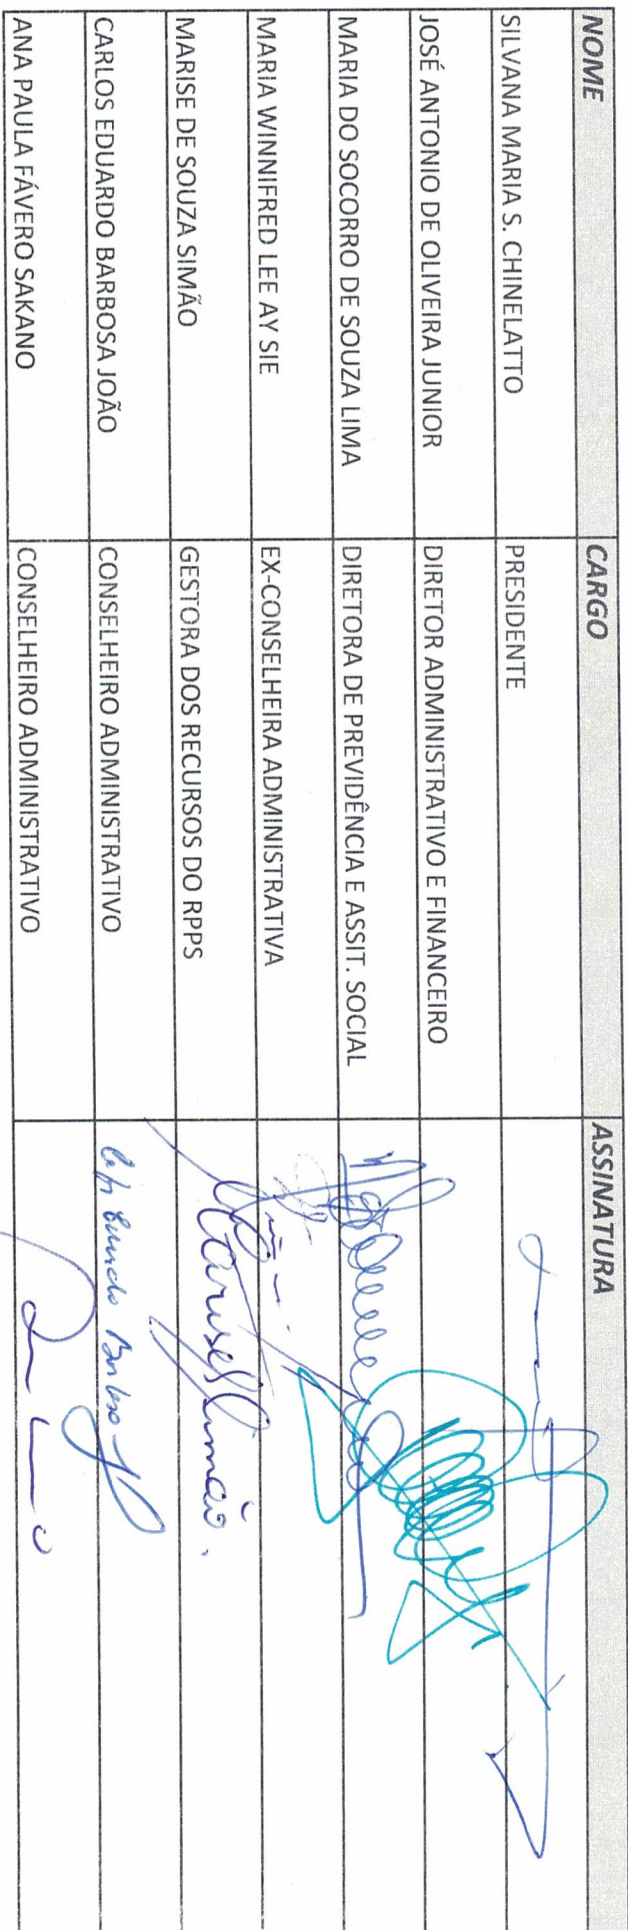 NOME CARGO ASSINATURA
SILVANA MARIA S. CHINELATTO PRESIDENTE
JOSÉ ANTONIO DE OLIVEIRA JUNIOR DIRETOR ADMINISTRATIVO E FINANCEIRO
MARIA DO SOCORRO DE SOUZA LIMA DIRETORA DE PREVIDÊNCIA E ASSIT. SOCIAL
MARIA WINNIFRED LEE AY SIE EX-CONSELHEIRA ADMINISTRATIVA
MARISE DE SOUZA SIMÃO GESTORA DOS RECURSOS DO RPPS MariseSSimão.
CARLOS EDUARDO BARBOSA JOÃO CONSELHEIRO ADMINISTRATIVO
ANA PAULA FÁVERO SAKANO CONSELHEIRO ADMINISTRATIVO